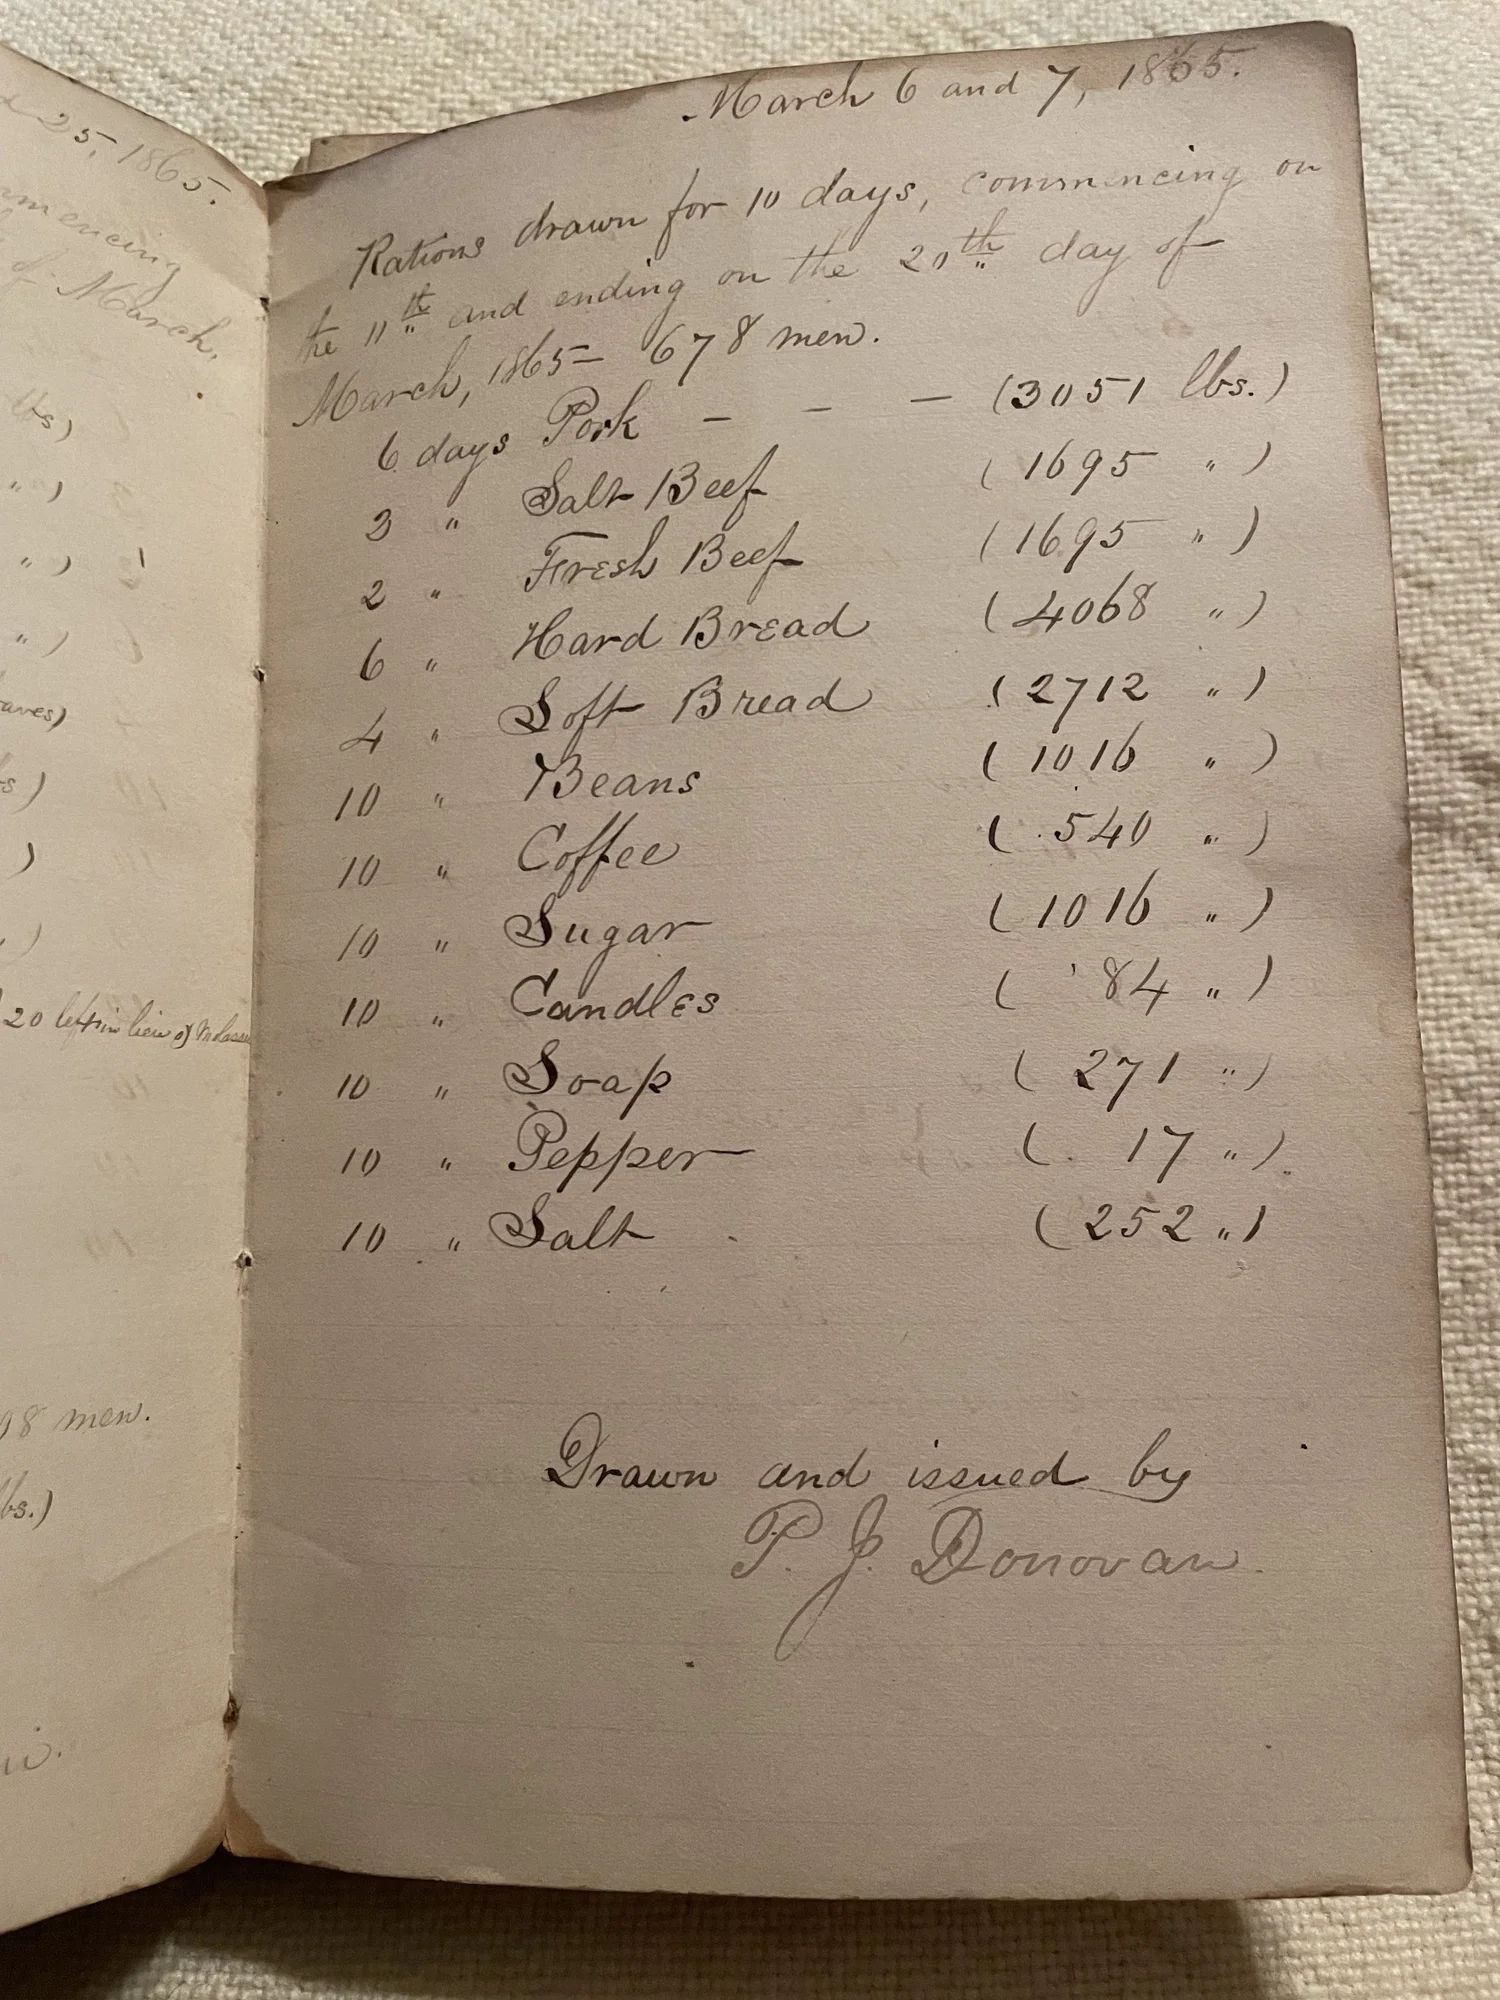 25, 1865.
of March.
lbs)
" )
" )
" )
)
20 left in lieu of
98 men.
lbs.)
March 6 and 7, 1865.
Rations drawn for 10 days, commencing on
the 11th and ending on the 20th day of
March, 1865 - 678 men.
6 days Pork - - - (3051 lbs.)
3 " Salt Beef (1695 ")
2 " Fresh Beef (1695 ")
6 " Hard Bread (4068 ")
4 " Soft Bread (2712 ")
10 " Beans (1016 ")
10 " Coffee (540 ")
10 " Sugar (1016 ")
10 " Candles (84 ")
10 " Soap (271 ")
10 " Pepper (17 ")
10 " Salt (252 ")
Drawn and issued by
P. J. Donovan.